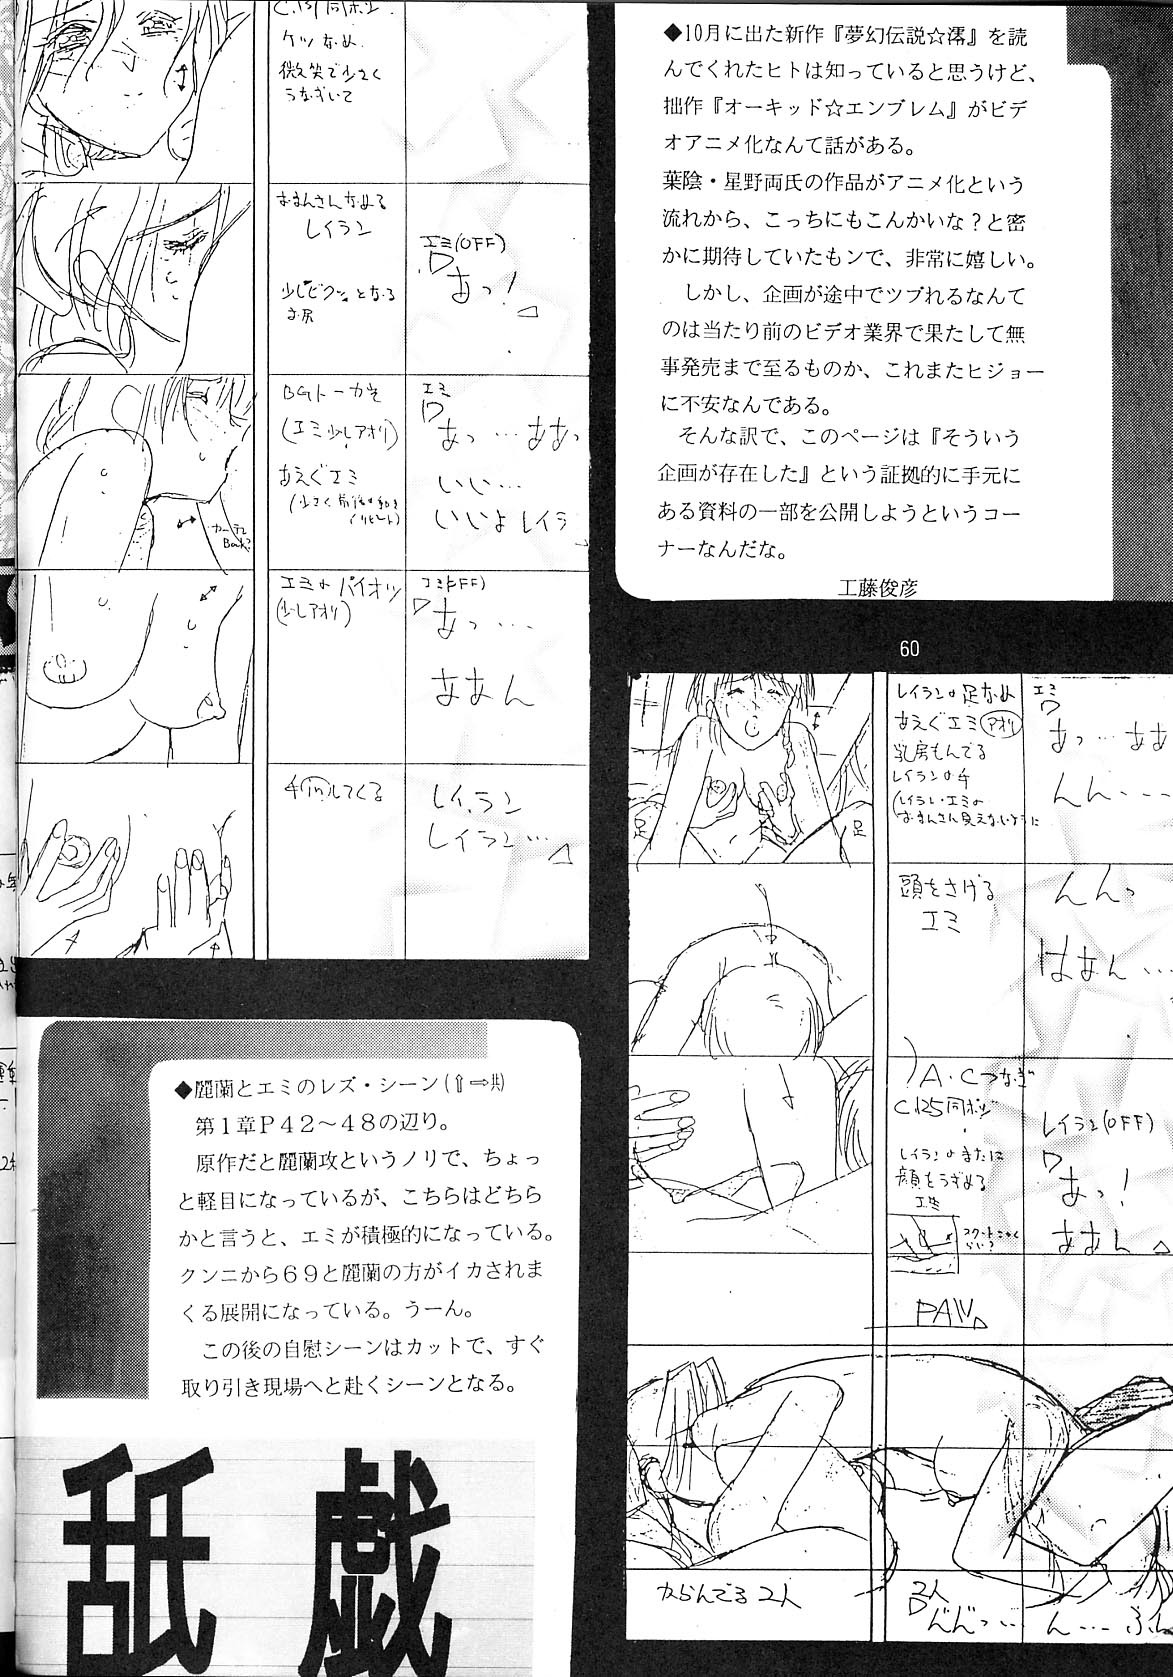 ◆10月に出た新作『夢幻伝説☆澪』を読
んでくれたヒトは知っていると思うけど、
拙作『オーキッド☆エンブレム』がビデ
オアニメ化なんて話がある。
葉陰・星野両氏の作品がアニメ化という
流れから、こっちにもこんかいな？と密
かに期待していたもンで、非常に嬉しい。
しかし、企画が途中でツブれるなんて
のは当たり前のビデオ業界で果たして無
事発売まで至るものか、これまたヒジョー
に不安なんである。
そんな訳で、このページは『そういう
企画が存在した』という証拠的に手元に
ある資料の一部を公開しようというコー
ナーなんだな。
工藤俊彦
60
微笑で少さく
うなずいて
レイラン
エミ(OFF)
あっ！
少しビクッとなる
お尻
(エミ少しアオリ)
あえぐエミ
エミ
あっ…ああっ
いい…
いいよレイラ
カーテン
Back?
エミのパイオツ
(少しアオリ)
エミ(OFF)
あっ…
ああん
手inしてくる
レイラン
レイラン…
レイランの足なめ
あえぐエミ アオリ
乳房もんでる
レイランの手
エミ
あっ…ああ
んん…
足
足
頭をさげる
エミ
んんっ
はあん…
A・Cつなぎ
C.125同ポジ
レイランのまたに
顔をうずめる
エミ
レイラン(OFF)
あっ！
ああん
PAN
からんでる2人
2人
んんっ…
ん…ふん
◆麗蘭とエミのレズ・シーン(⇧⇨共)
第１章Ｐ４２～４８の辺り。
原作だと麗蘭攻というノリで、ちょっ
と軽目になっているが、こちらはどちら
かと言うと、エミが積極的になっている。
クンニから６９と麗蘭の方がイカされま
くる展開になっている。うーん。
この後の自慰シーンはカットで、すぐ
取り引き現場へと赴くシーンとなる。
舐戯